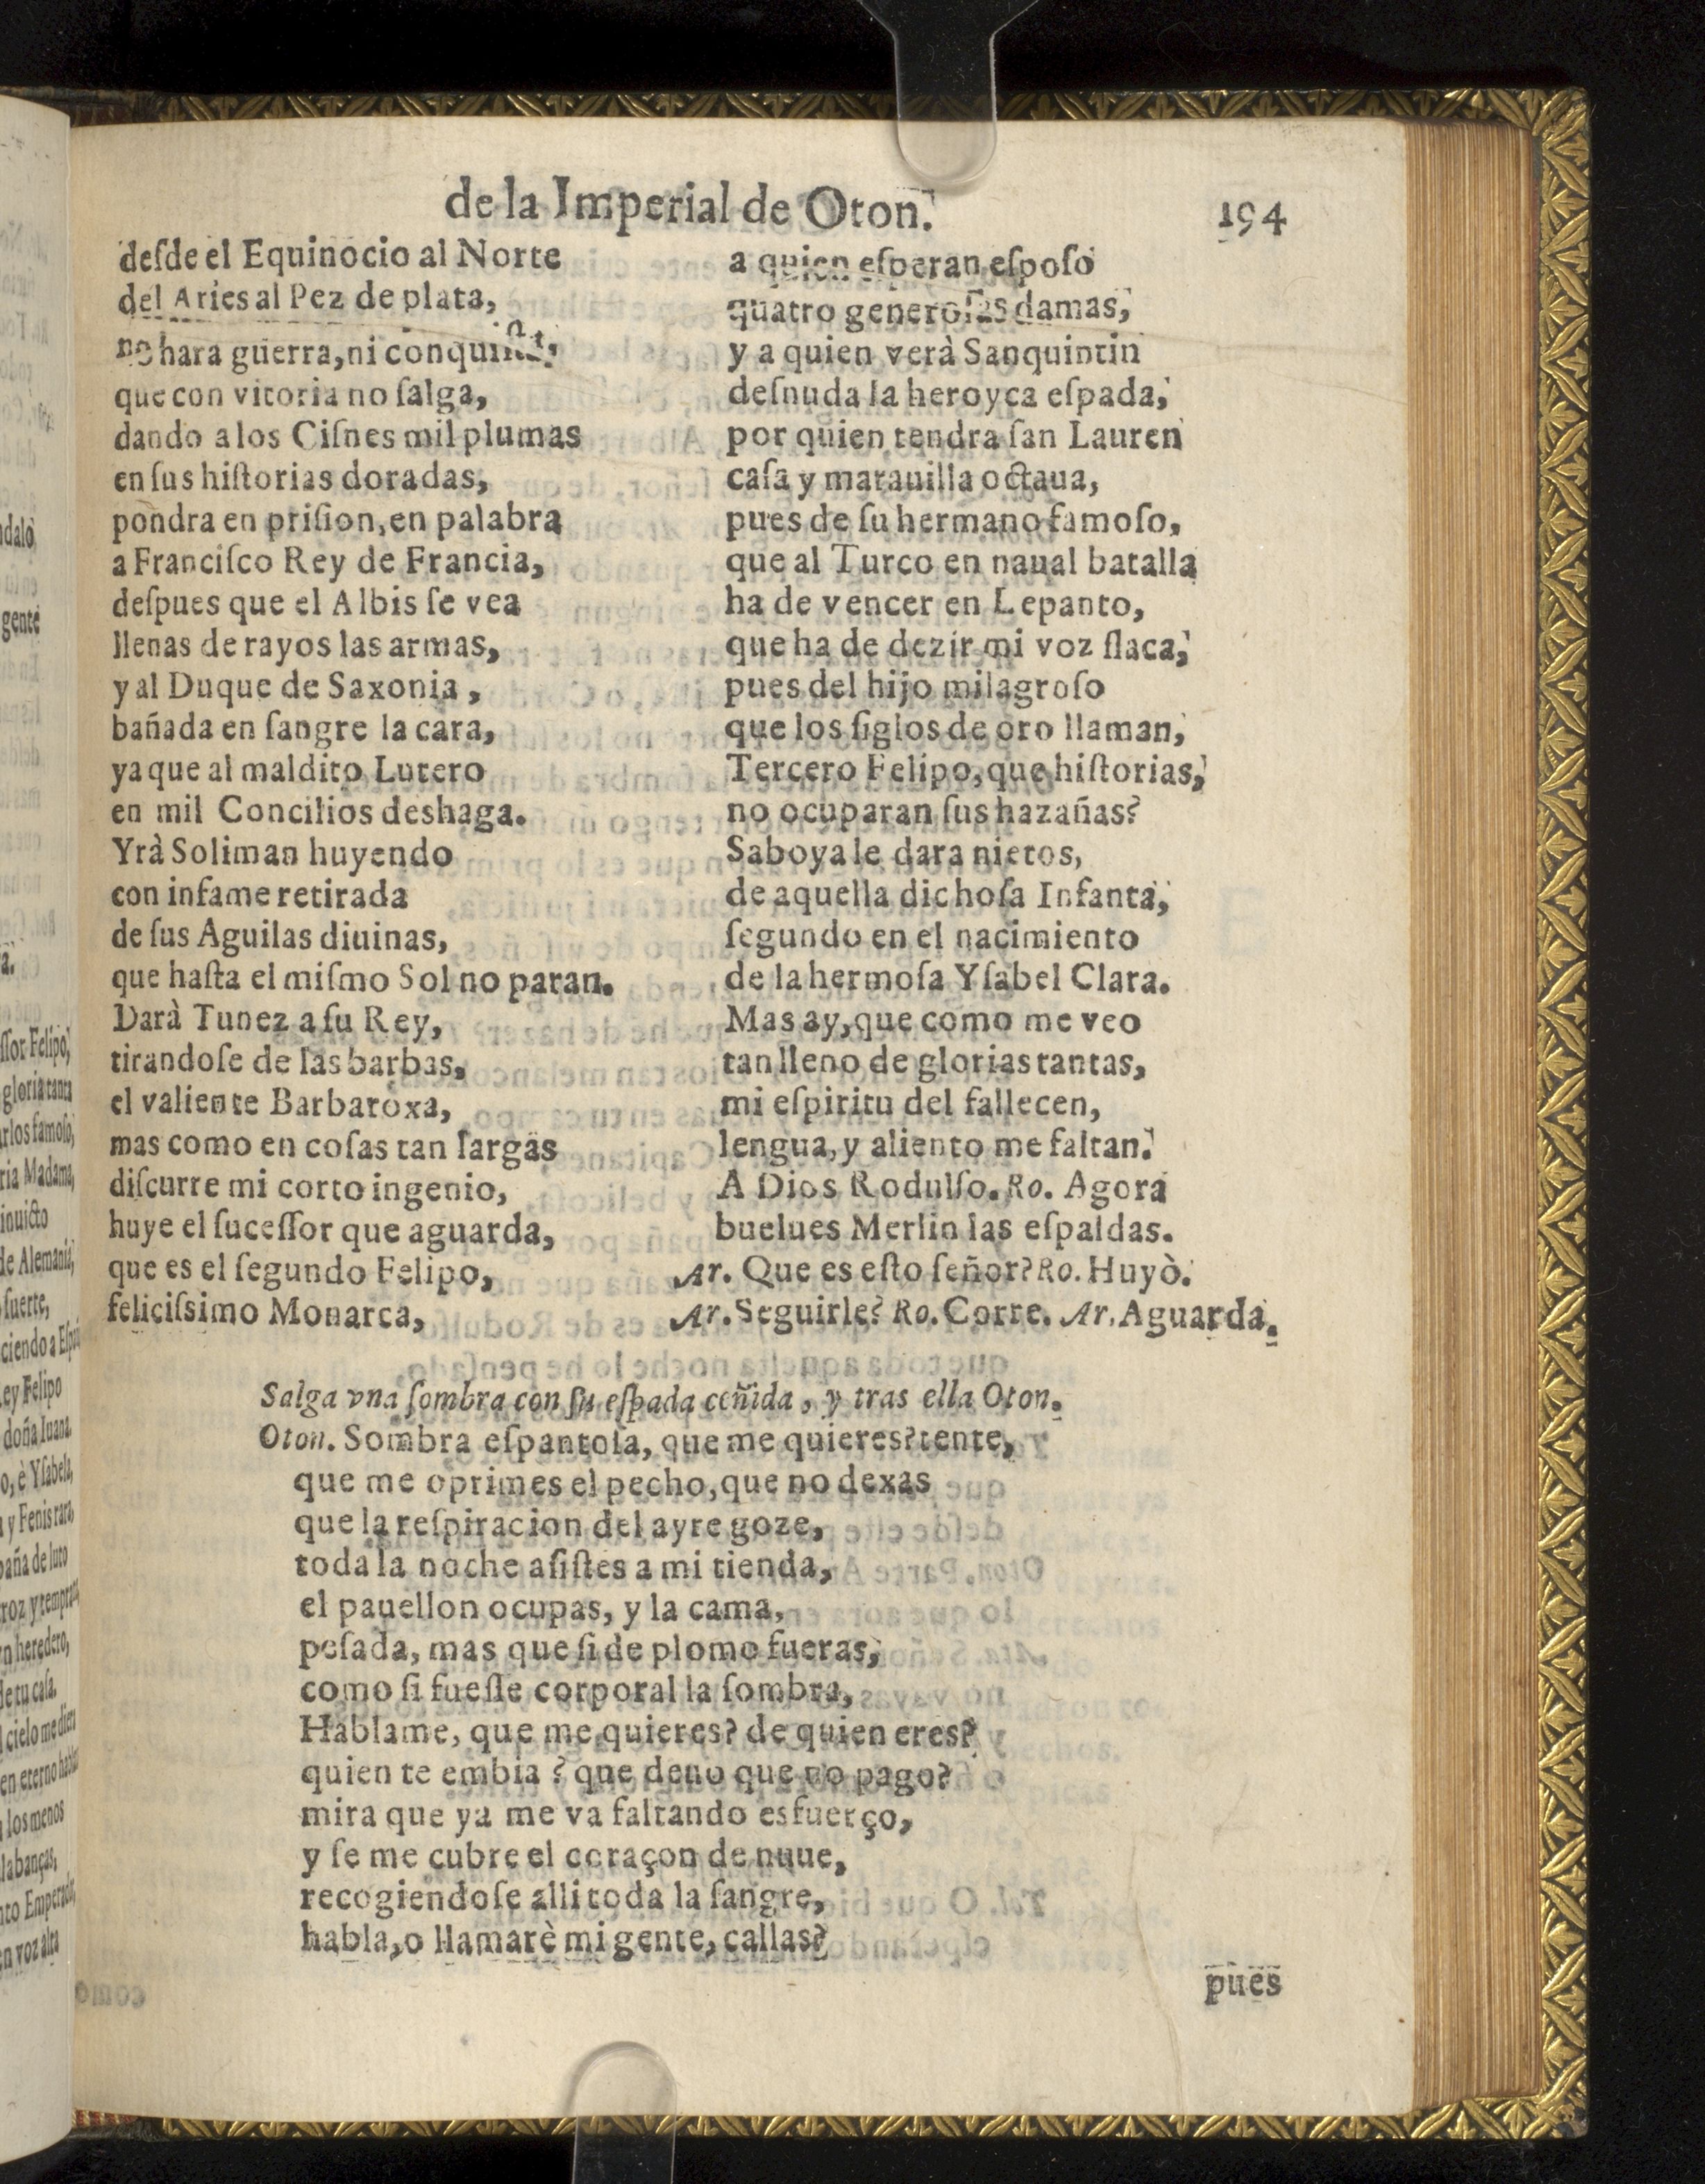 de la Imperial de Oton.
194
deſde el Equinocio al Norte
del Aries al Pez de plata,
no hara guerra, ni conquiſta,
que con vitoria no ſalga,
dando a los Ciſnes mil plumas
en ſus hiſtorias doradas,
pondra en priſion, en palabra
a Franciſco Rey de Francia,
deſpues que el Albis ſe vea
llenas de rayos las armas,
y al Duque de Saxonia,
bañada en ſangre la cara,
ya que al maldito Lutero
en mil Concilios deshaga.
Yrà Soliman huyendo
con infame retirada
de ſus Aguilas diuinas,
que haſta el miſmo Sol no paran.
Darà Tunez a ſu Rey,
tirandoſe de las barbas,
el valiente Barbaroxa,
mas como en coſas tan largas
diſcurre mi corto ingenio,
huye el ſuceſſor que aguarda,
que es el ſegundo Felipo,
feliciſsimo Monarca,
a quien eſperan eſpoſo
quatro generoſas damas,
y a quien verà Sanquintin
deſnuda la heroyca eſpada,
por quien tendra ſan Lauren
caſa y marauilla octaua,
pues de ſu hermano famoſo,
que al Turco en naual batalla
ha de vencer en Lepanto,
que ha de dezir mi voz flaca,
pues del hijo milagroſo
que los ſiglos de oro llaman,
Tercero Felipo, que hiſtorias,
no ocuparan ſus hazañas?
Saboya le dara nietos,
de aquella dichoſa Infanta,
ſegundo en el nacimiento
de la hermoſa Yſabel Clara.
Mas ay, que como me veo
tan lleno de glorias tantas,
mi eſpiritu del fallecen,
lengua, y aliento me faltan.
A Dios Rodulfo. Ro. Agora
buelues Merlin las eſpaldas.
Ar. Que es eſto ſeñor? Ro. Huyò.
Ar. Seguirle? Ro. Corre. Ar. Aguarda.
Salga vna ſombra con ſu eſpada ceñida, y tras ella Oton.
Oton. Sombra eſpantoſa, que me quieres? tente,
que me oprimes el pecho, que no dexas
que la reſpiracion del ayre goze,
toda la noche aſiſtes a mi tienda,
el pauellon ocupas, y la cama,
peſada, mas que ſi de plomo fueras,
como ſi fueſſe corporal la ſombra,
Hablame, que me quieres? de quien eres?
quien te embia? que deuo que no pago?
mira que ya me va faltando esfuerço,
y ſe me cubre el coraçon de nuue,
recogiendoſe alli toda la ſangre,
habla, o llamarè mi gente, callas?
pues